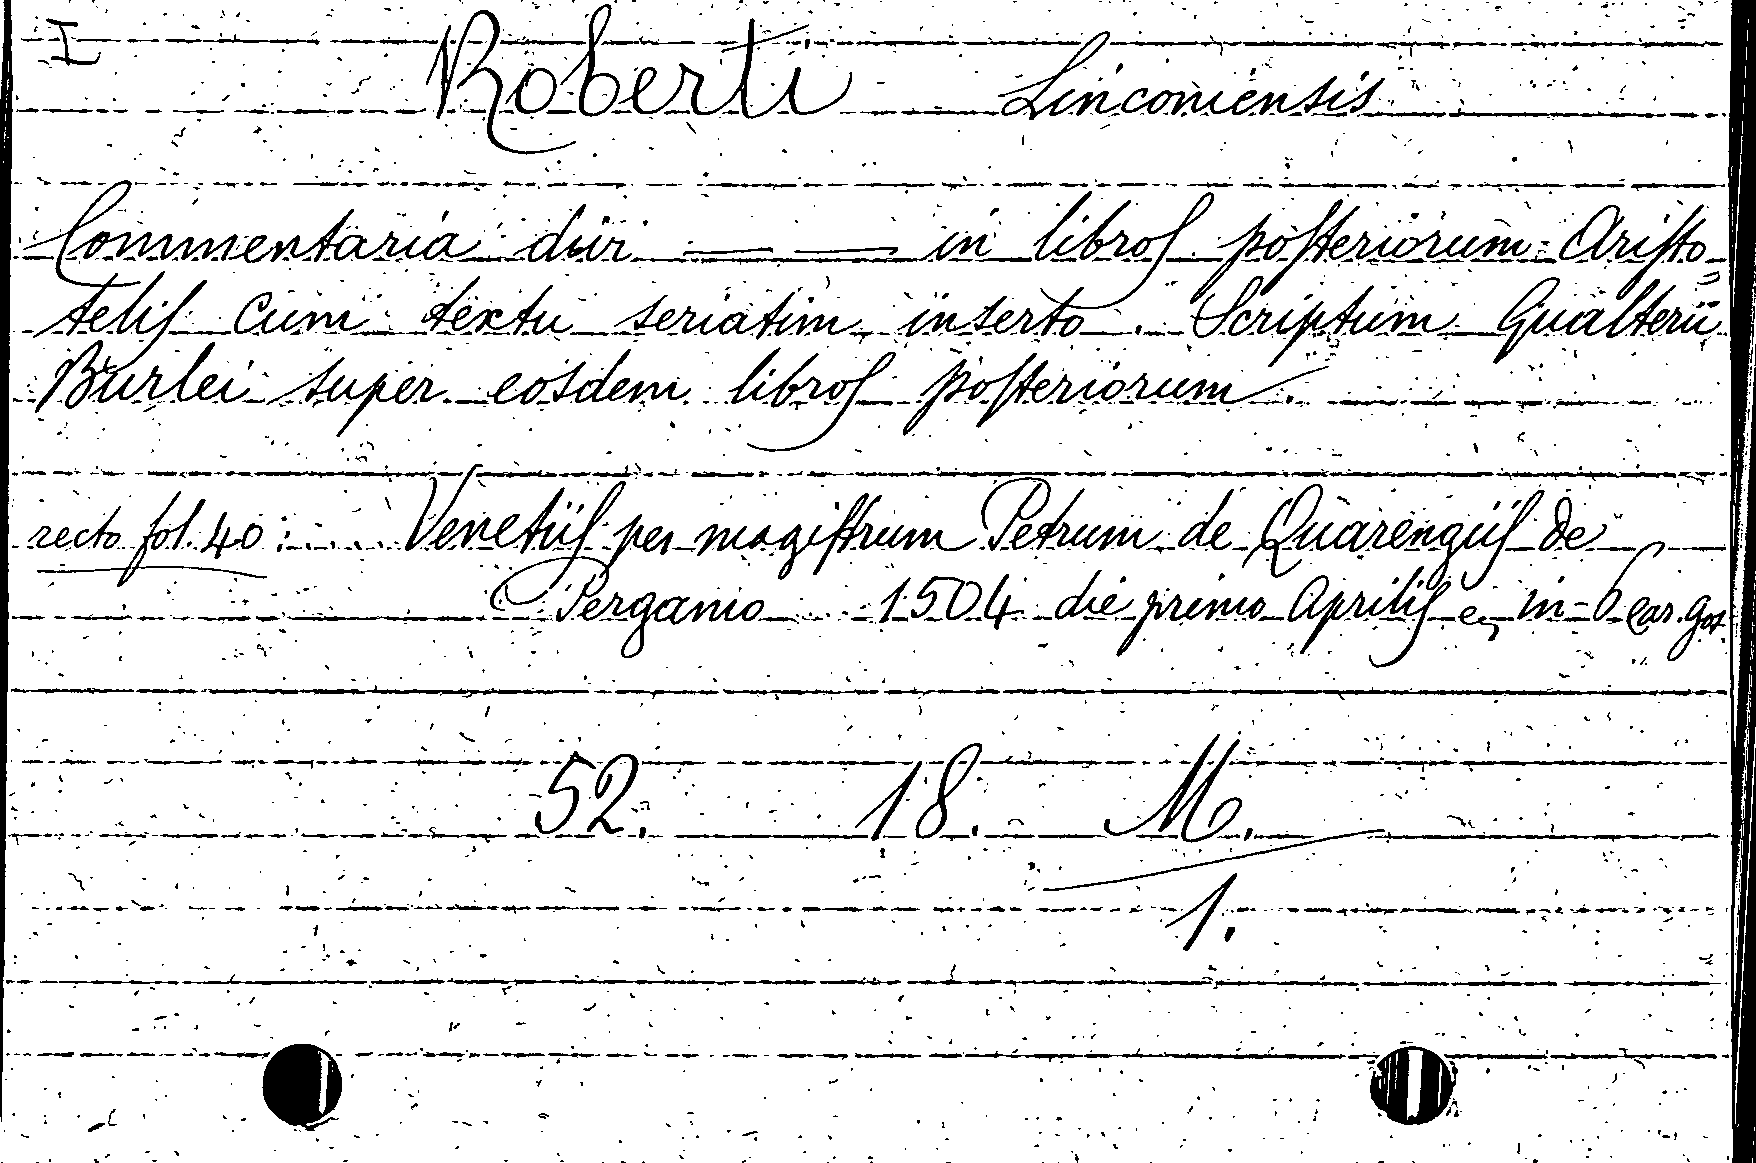 I
Roberti Linconiensis
Commentaria diui — — in libros posteriorum Aristo-
telis cum textu seriatim inserto. Scriptum Gualterii
Burlei super eosdem libros posteriorum.
recto fol. 40: ... Venetiis per magistrum Petrum de Quarengiis de
Pergamo 1504 die primo Aprilis in-6 car. got.
52. 18. M.
1.